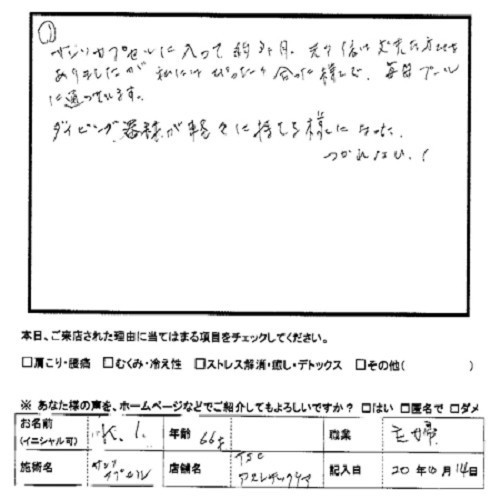 ①
カプセルに入って約3ヶ月.
ありましたが 私には ぴったり合った様で、毎日プール
に通っています。
ダイビング器材が軽々に持てる様になった.
つかれない!
本日、ご来店された理由に当てはまる項目をチェックしてください。
□肩こり・腰痛 □むくみ・冷え性 □ストレス解消・癒し・デトックス □その他( )
※ あなた様の声を、ホームページなどでご紹介してもよろしいですか? □はい □匿名で □ダメ
お名前 (イニシャル可) K.I. 年齢 66才 職業 主婦
施術名 カプセル 店舗名 TSC アスレチッククラブ 記入日 20年10月14日